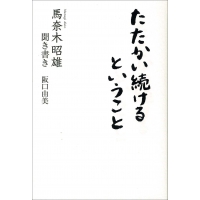 たたかい続ける
ということ
馬奈木昭雄
聞き書き
阪口由美